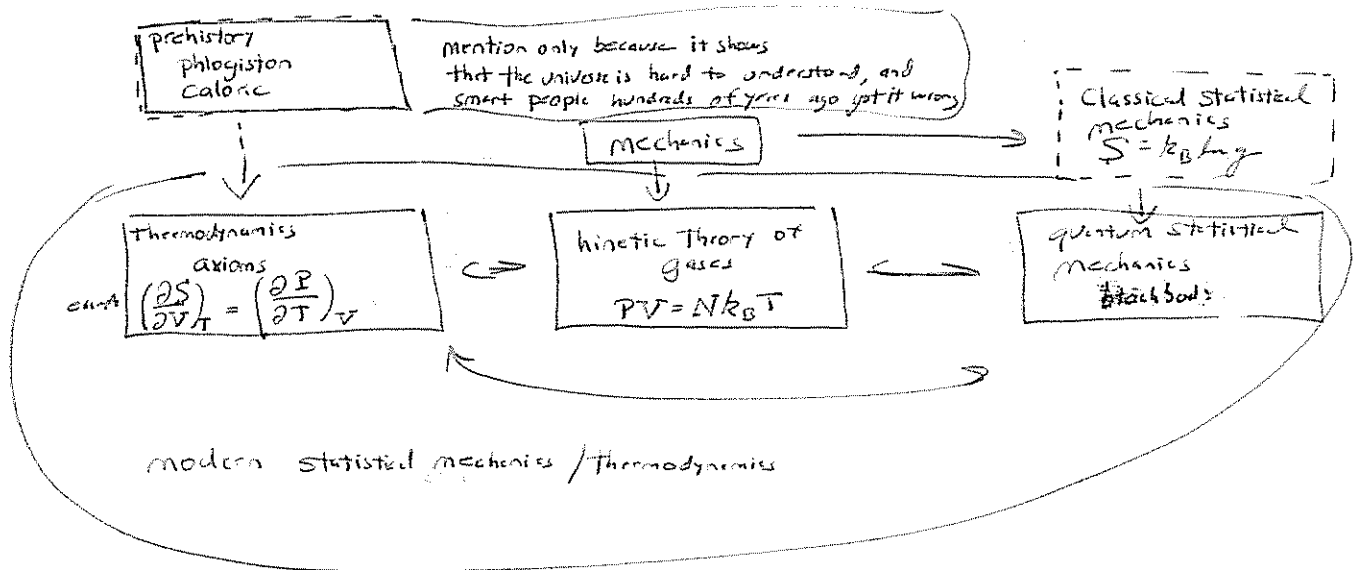 prehistory
phlogiston
caloric
mention only because it shows
that the universe is hard to understand, and
smart people hundreds of years ago got it wrong
mechanics
Classical statistical
mechanics
S = k_B ln g
Thermodynamics
axioms
(∂S/∂V)_T = (∂P/∂T)_V
kinetic Theory of
gases
PV = Nk_BT
quantum statistical
mechanics
modern statistical mechanics / thermodynamics